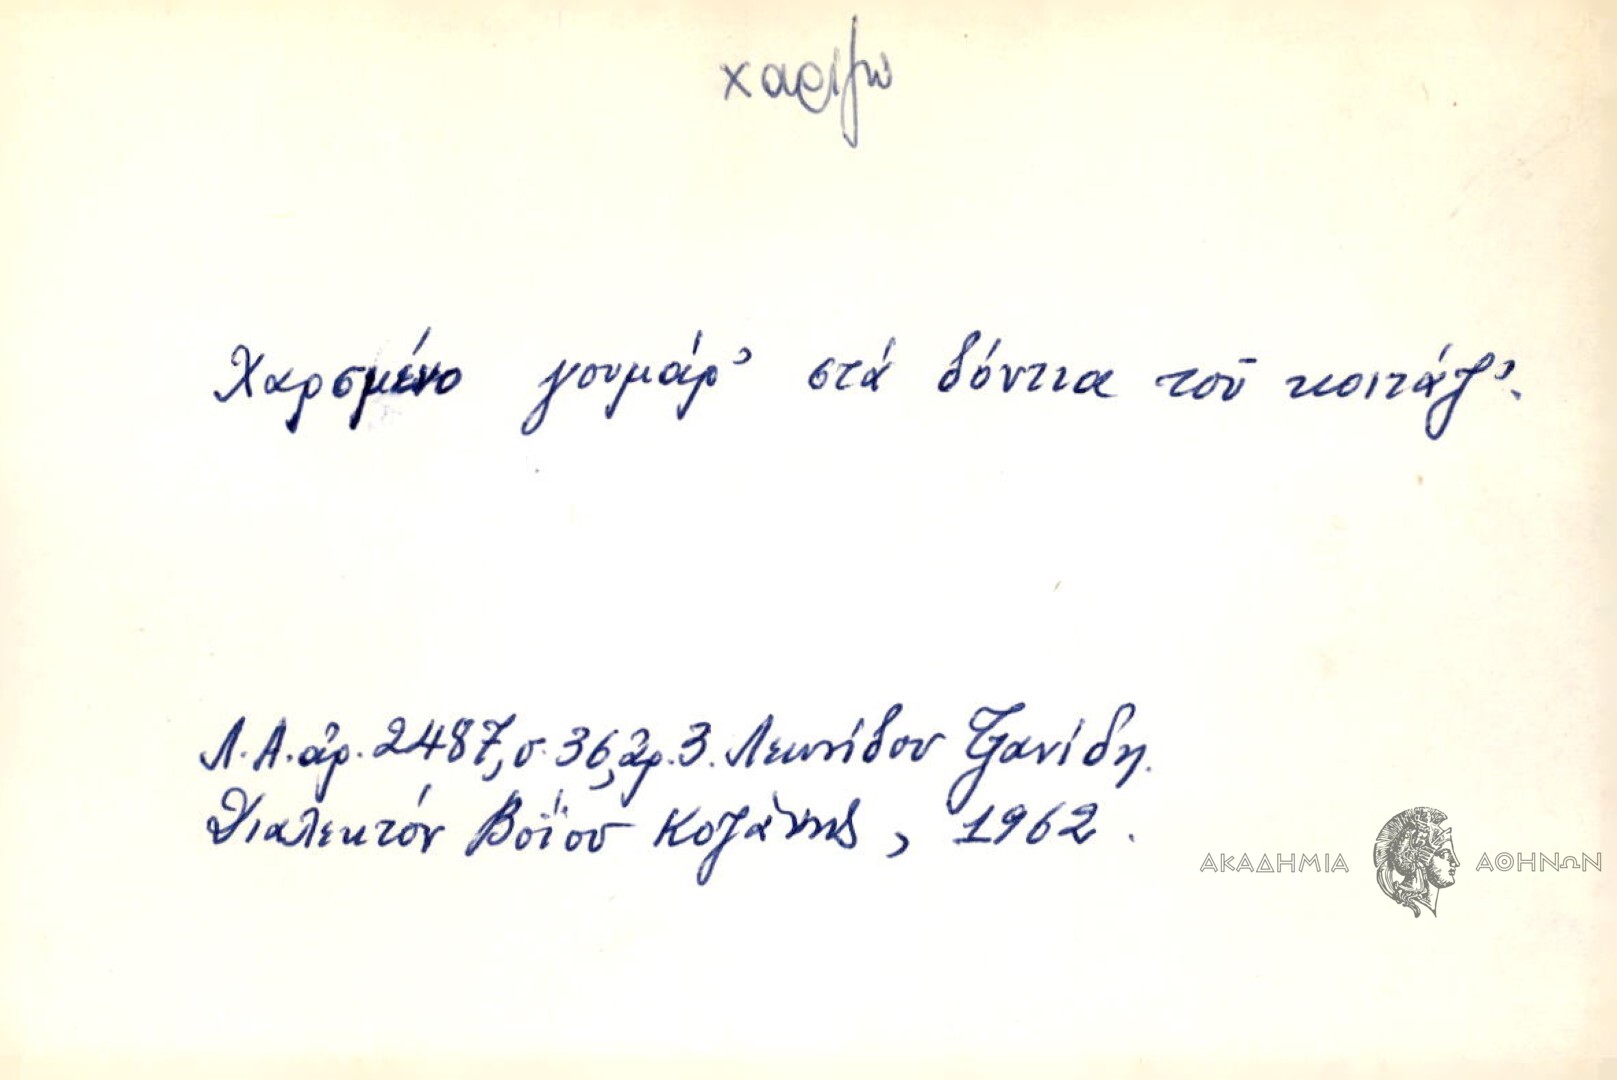 χαρίζω
Χαρσμένο γουμάρ' στά δόντια τοῦ κοιτάζ'.
Λ.Α. ἀρ. 2487, σ. 36, ἀρ. 3. Λεωνίδου Τζανίδη.
Διαλεκτόν Βοΐου Κοζάνης, 1962.
ΑΚΑΔΗΜΙΑ ΑΘΗΝΩΝ